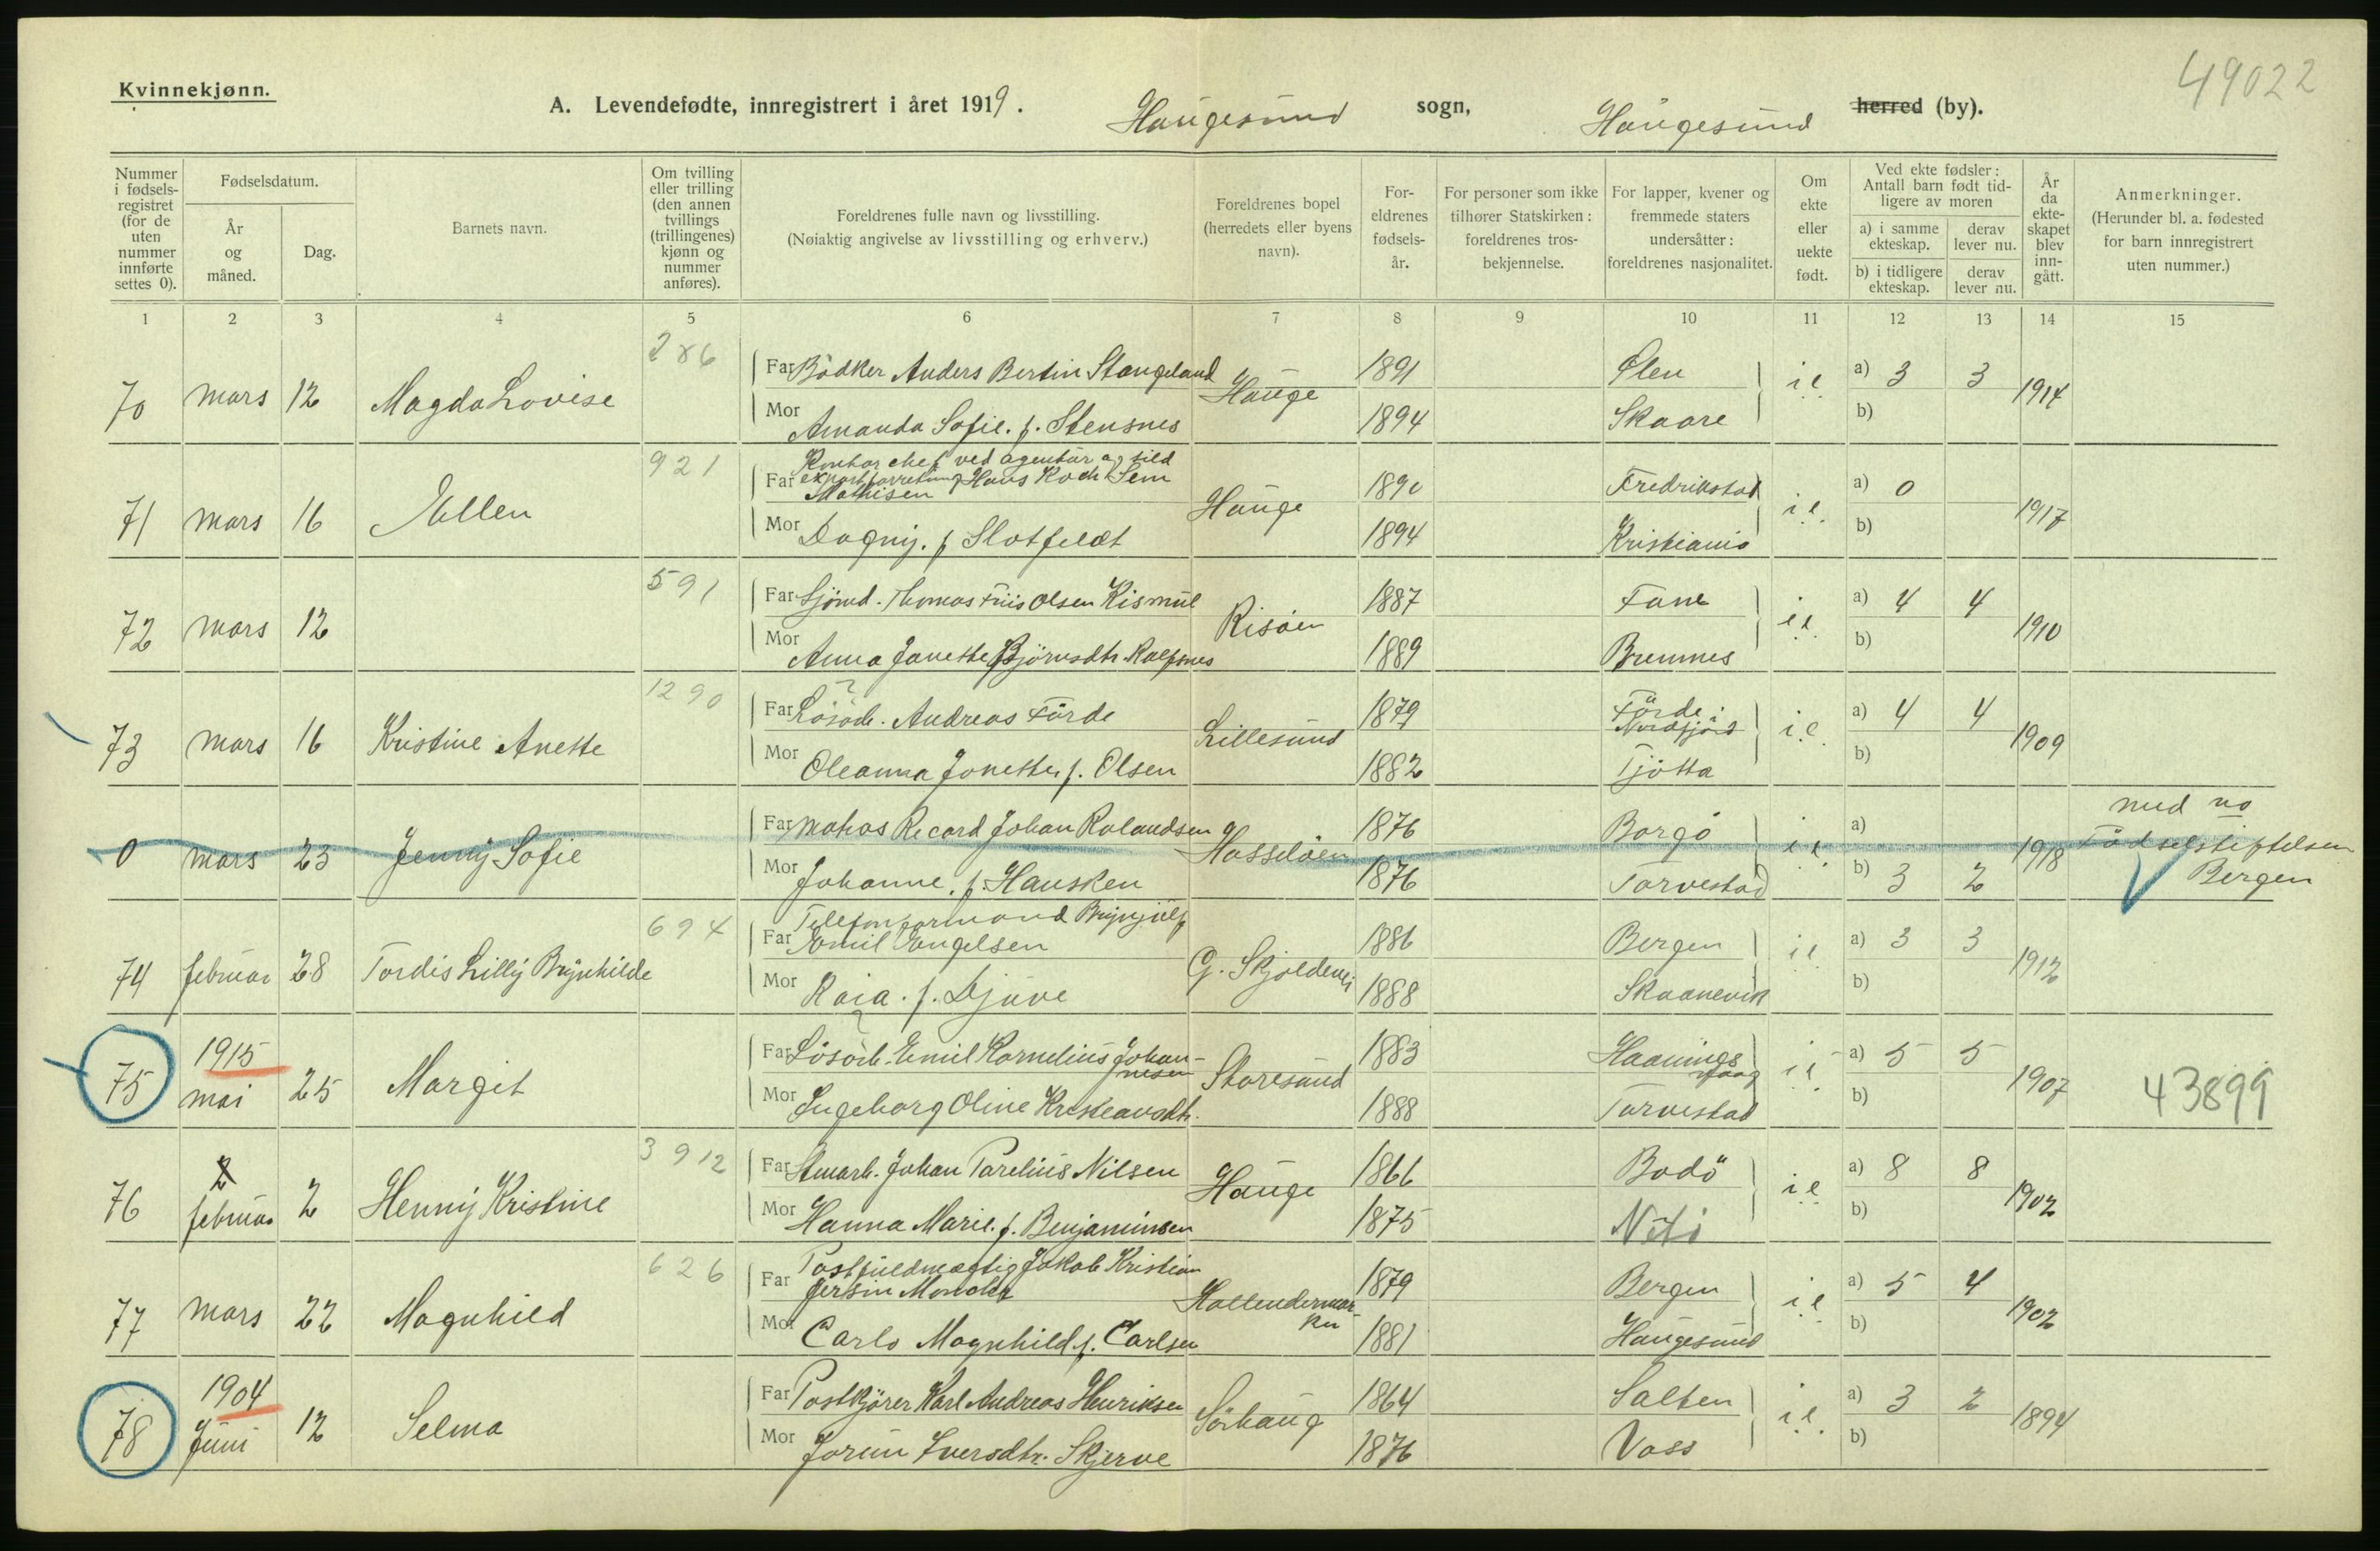 49022
Kvinnekjønn.
A. Levendefødte, innregistrert i året 1919. Haugesund sogn, Haugesund herred (by).
Nummer i fødselsregistret (for de uten nummer innførte settes 0).
Fødselsdatum.
År og måned.
Dag.
Barnets navn.
Om tvilling eller trilling (den annen tvillings (trillingenes) kjønn og nummer anføres).
Foreldrenes fulle navn og livsstilling.
(Nøiaktig angivelse av livsstilling og erhverv.)
Foreldrenes bopel (herredets eller byens navn).
Foreldrenes fødselsår.
For personer som ikke tilhører Statskirken: foreldrenes trosbekjennelse.
For lapper, kvener og fremmede staters undersåtter: foreldrenes nasjonalitet.
Om ekte eller uekte født.
Ved ekte fødsler: Antall barn født tidligere av moren
a) i samme ekteskap.
derav lever nu.
b) i tidligere ekteskap.
derav lever nu.
År da ekteskapet blev inngått.
Anmerkninger.
(Herunder bl. a. fødested for barn innregistrert uten nummer.)
1 2 3 4 5 6 7 8 9 10 11 12 13 14 15
286
70 mars 12 Magda Lovise
Far Bödker Anders Bertin Stangeland Hauge 1891 Ölen i e a) 3 3 1914
Mor Amanda Sofie. f. Stensnes 1894 Skaare b)
921
71 mars 16 Ellen
Kontorchef ved agentur og sild
Far exportforretning Hans Koch Sem
Mathisen Hauge 1890 Fredrikstad i e. a) 0 1917
Mor Dagny. f Slotfeldt 1894 Kristiania b)
591
72 mars 12
Far Sjömd. Thomas Friis Olsen Kismul Risöen 1887 Fane i e. a) 4 4 1910
Mor Anna Janette Björnsdtr. 1889 Bremnes b)
1290
73 mars 16 Kristine Anette
Far Lösarb. Andreas Förde Lillesund 1879 Förde i Nordfjord i.e. a) 4 4 1909
Mor Oleanna Jonette, f. Olsen 1882 Tjötta b)
0 mars 23 Jenny Sofie
Far Johan Rolandsen Hasseløen 1876 Borgö i e. a) 1918 med no Födselsstiftelsen Bergen
Mor Johanne. f. Hausken 1876 Torvestad b) 3 2
694
74 februar 28 Tordis Lilly Brynhilde
Telefonformand Brynjulf
Far Emil Engelsen G. Skjoldevei 1886 Bergen i e a) 3 3 1912
Mor Raia. f. Djuve 1888 Skaanevik b)
75 1915 mai 25 Margit
Far Lösarb. Emil Kornelius Johannesen Storesund 1883 Haanings vaag i e a) 5 5 1907 43899
Mor Ingeborg Oline Kristiansdtr. 1888 Torvestad b)
3912
76 2 februar 2 Henny Kristine
Far Stuarb. Johan Parelius Nilsen Hauge 1866 Bodö i e a) 8 8 1902
Mor Hanna Marie. f. Benjaminsen 1875 b)
626
77 mars 22 Magnhild
Postfuldmægtig Jakob Kristian
Far Jersin Hollendermarken 1879 Bergen i e a) 5 4 1902
Mor Carla Magnhild f. Carlsen 1881 Haugesund b)
78 1904 Juni 12 Selma
Far Postkjörer Karl Andreas Henriksen Sörhaug 1864 Salten i e. a) 3 2 1894
Mor Jorun Iversdtr. Skjerve 1876 Voss b)